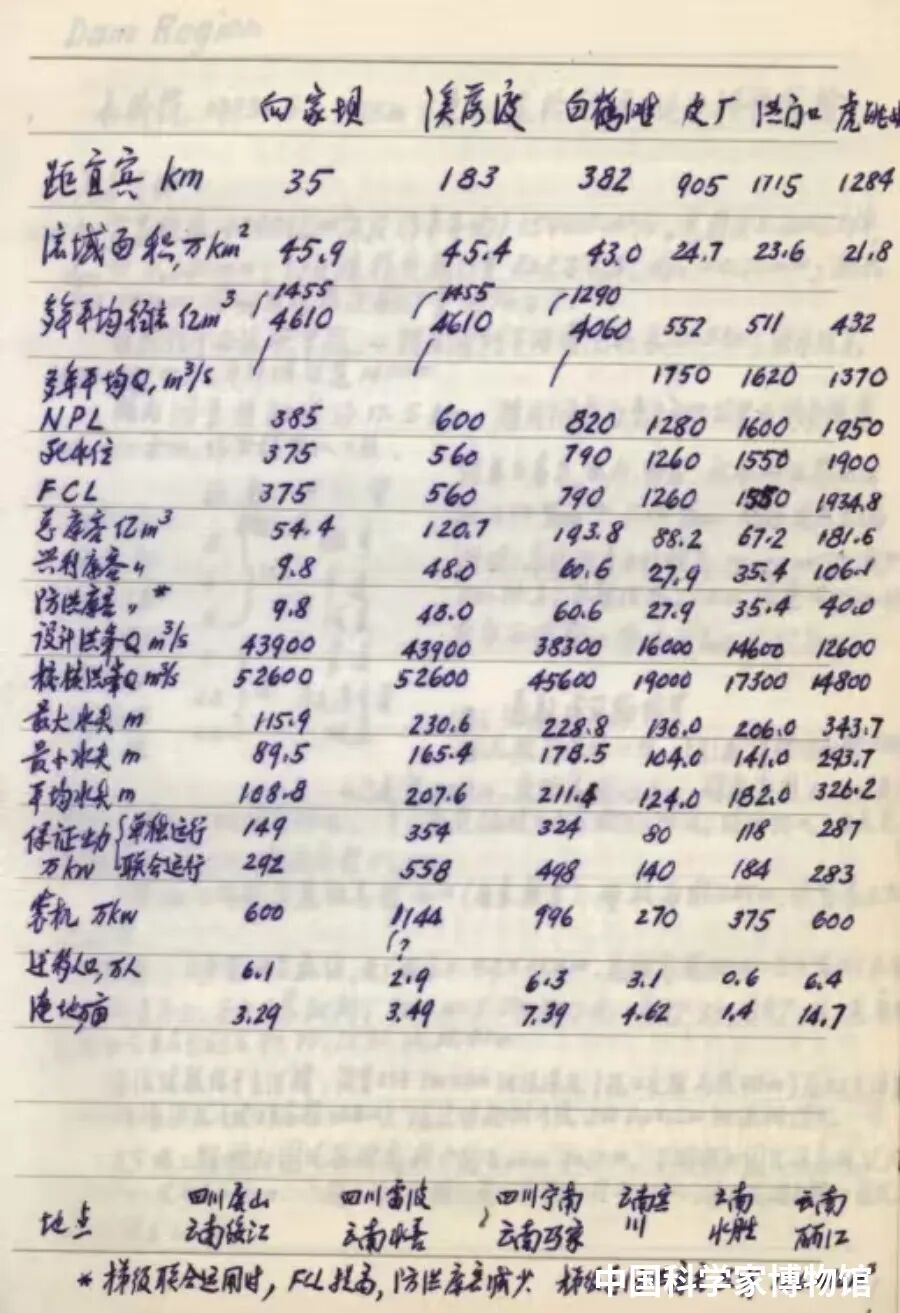 Dam Region
向家坝 溪落渡 白鹤滩 皮厂 洪门口 虎跳
距宜宾 km 35 183 382 905 1715 1284
流域面积,万km² 45.9 45.4 43.0 24.7 23.6 21.8
1455 1455 1290
多年平均径流 亿m³ 4610 4610 4060 552 511 432
多年平均Q, m³/s 1750 1620 1370
NPL 385 600 820 1280 1600 1950
死水位 375 560 790 1260 1550 1900
FCL 375 560 790 1260 1550 1934.8
总库容 亿m³ 54.4 120.7 193.8 88.2 67.2 181.6
兴利库容 〃 9.8 48.0 60.6 27.9 35.4 106.1
防洪库容 〃* 9.8 48.0 60.6 27.9 35.4 40.0
设计洪峰Q m³/s 43900 43900 38300 16000 14600 12600
校核洪峰Q m³/s 52600 52600 45600 19000 17300 14800
最大水头 m 115.9 230.6 228.8 136.0 206.0 343.7
最小水头 m 89.5 165.4 178.5 104.0 141.0 293.7
平均水头 m 108.8 207.6 211.4 124.0 182.0 326.2
保证出力 单独运行 149 354 324 80 118 287
万kw 联合运行 292 558 498 140 184 283
装机 万kw 600 1144 996 270 375 600
(?
迁移人口,万人 6.1 2.9 6.3 3.1 0.6 6.4
淹地万亩 3.29 3.49 7.39 4.62 1.4 14.7
四川屏山 四川雷波 四川宁南 云南宾 云南 云南
地点 云南绥江 云南永善 云南巧家 川 永胜 丽江
* 梯级联合运用时, FCL提高, 防洪库容减少 梯级
中国科学家博物馆